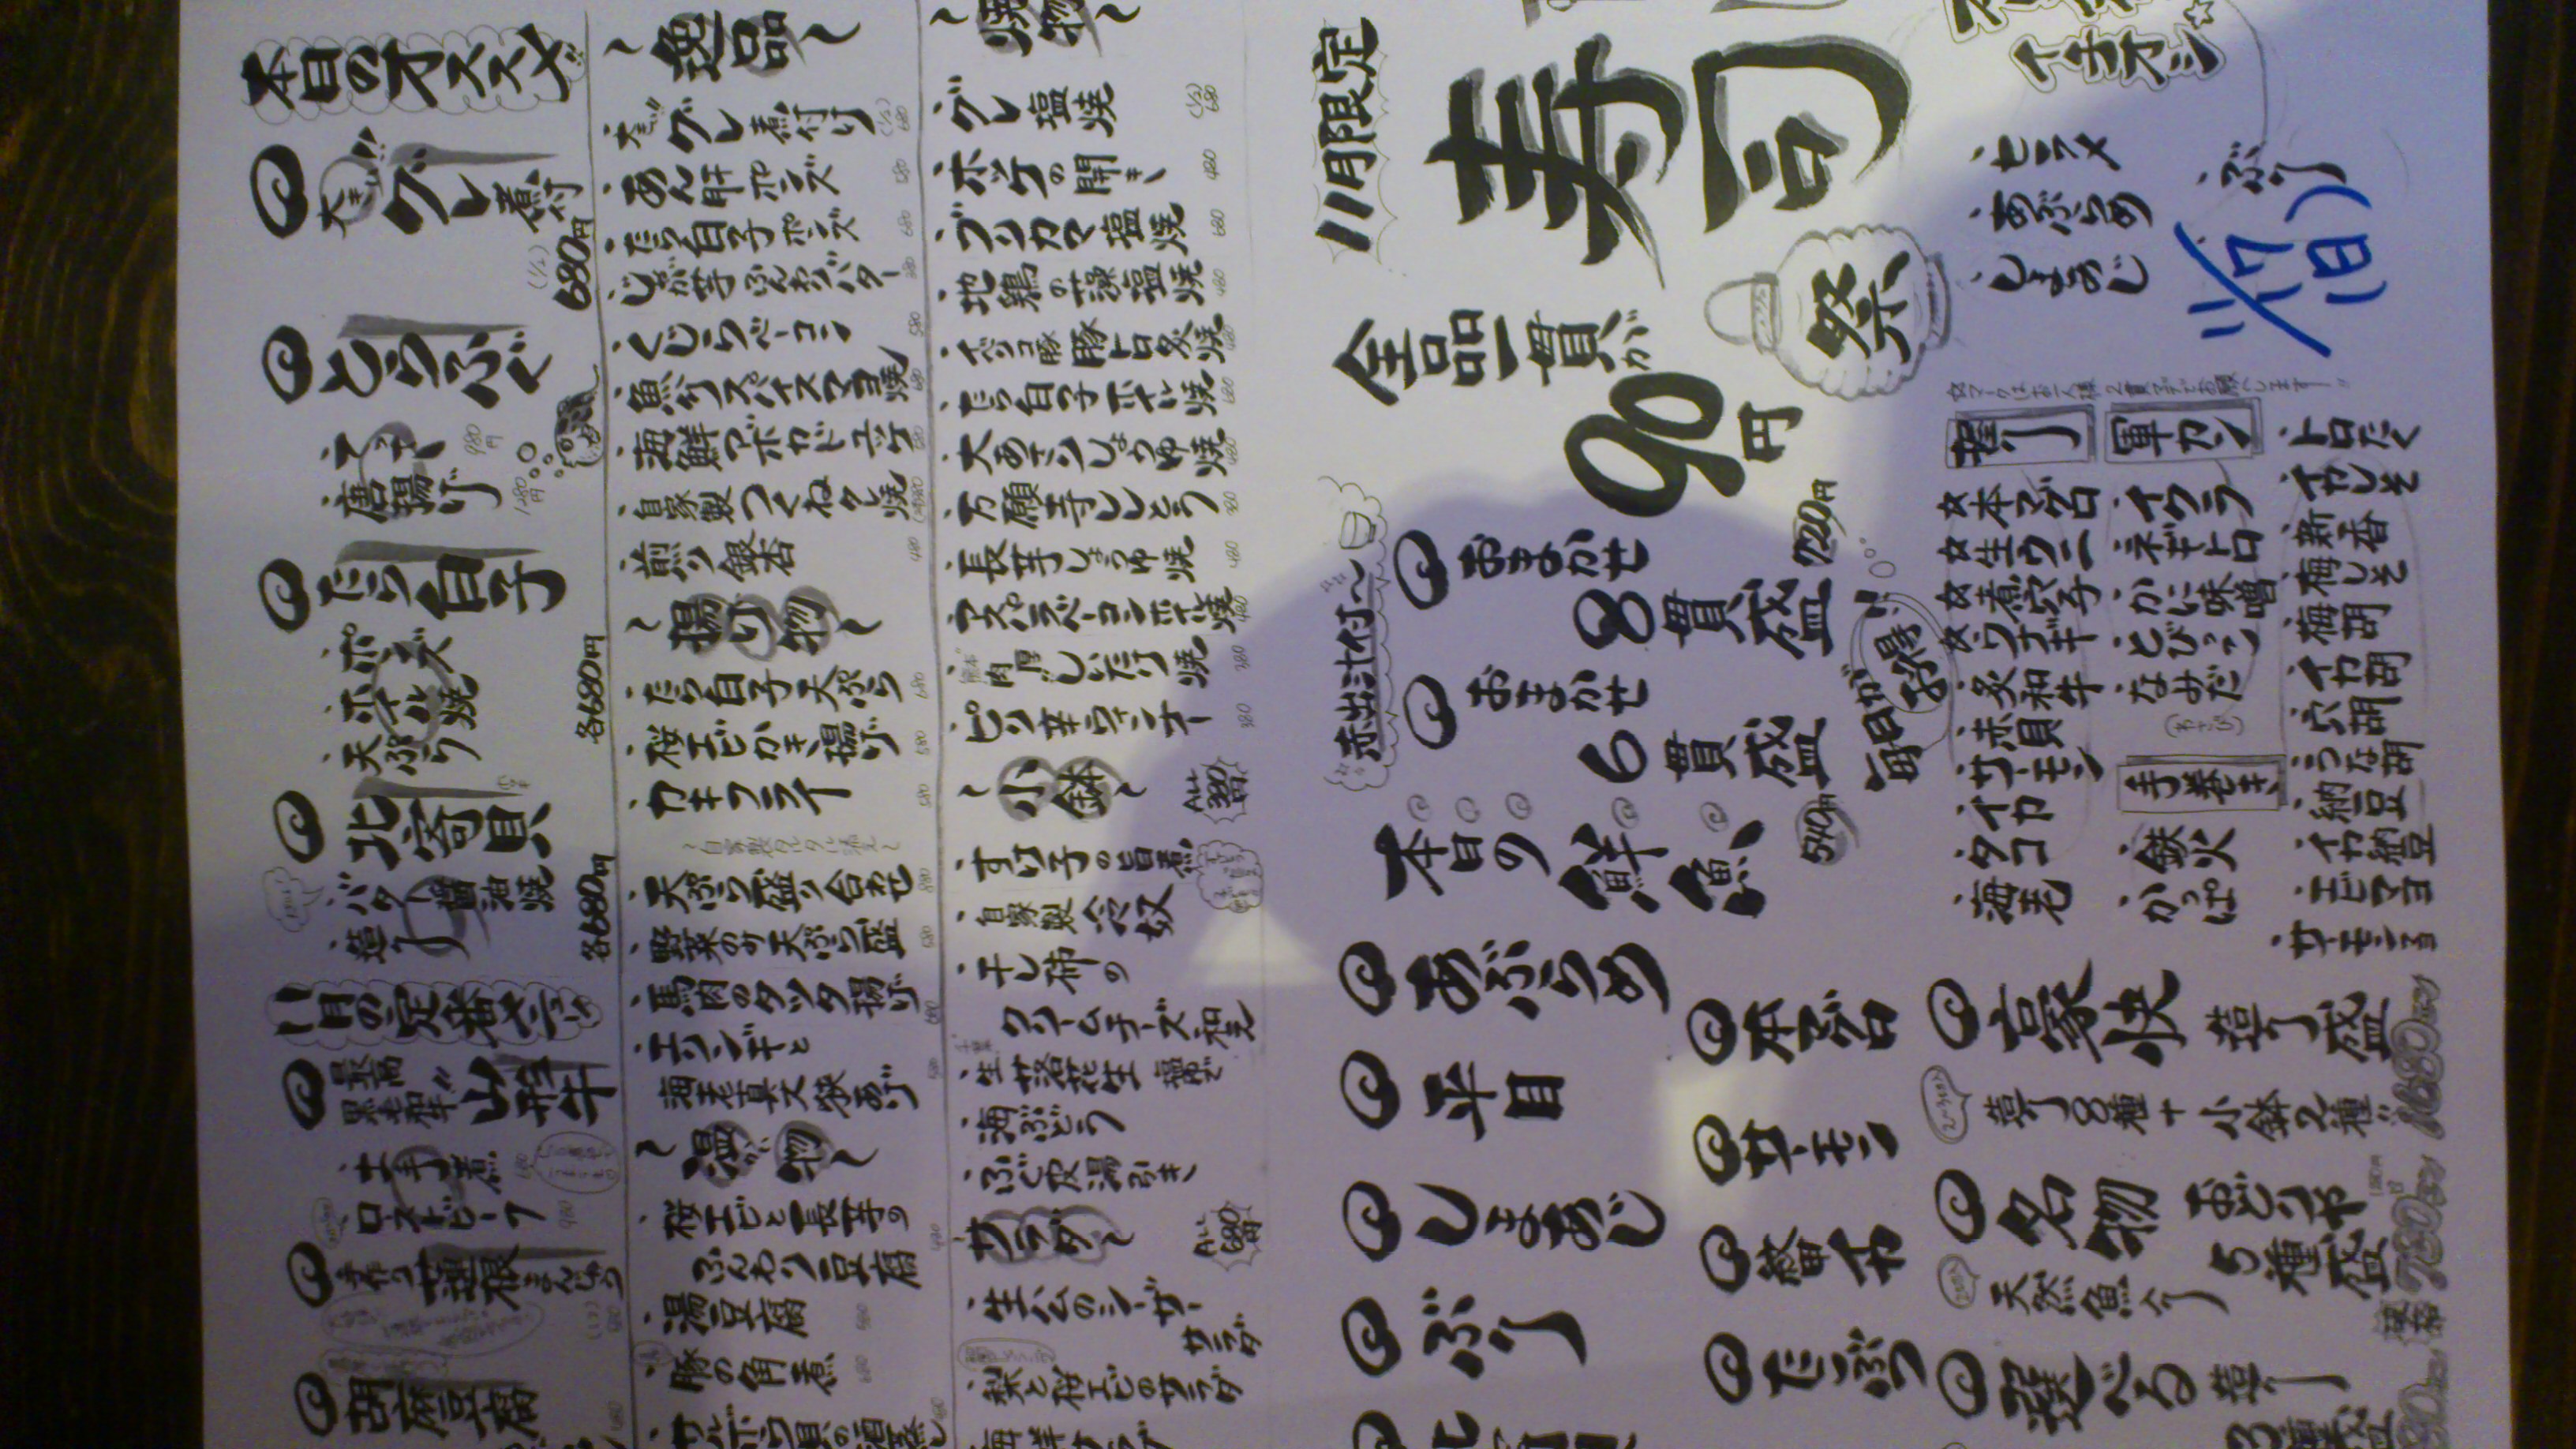 本日のオススメ
大きい!! グレ煮付
(1/2) 680円
とらふぐ
てっさ 980円
唐揚げ 1280円
たら白子
ポンズ
ホイル焼
天ぷら
各680円
北寄貝
バター醤油焼
造り
各680円
11月の定番
最高 黒毛和牛!! 山形牛
土手煮 680
ローストビーフ 980
手作り 蓮根まんじゅう
胡麻豆腐
～逸品～
・大きい!! グレ煮付け (1/2) 680
・あん肝ポンズ 580
・たら白子ポンズ 680
・じゃが芋ふんわりバター
・くじらベーコン 580
・魚介スパイスマヨ焼 680
・海鮮アボカドユッケ 580
・自家製つくねタレ焼
・煎り銀杏 480
～揚げ物～
・たら白子天ぷら 680
・桜エビかき揚げ 580
・カキフライ 580
～自家製タルタル添え～
・天ぷら盛り合わせ 880
・野菜のみ天ぷら盛 580
・馬肉のタツタ揚げ 680
・エリンギと
海老真丈挟みあげ 580
～温物～
・桜エビと長芋の
ふんわり豆腐 480
・湯豆腐 580
・豚の角煮 680
・サルボウ貝の酒蒸し
～焼物～
・グレ塩焼 (1/2) 680
・ホッケの開き 480
・ブリカマ塩焼 680
・地鶏の藻塩焼 480
・イベリコ豚 豚トロ炙り焼
・たら白子ホイル焼 680
・大あさりしょうゆ焼 480
・万願寺ししとう
・長芋しょうゆ焼 480
・アスパラベーコンホイル焼 480
・肉厚しいたけ焼 380
・ピリ辛ウインナー 380
～小鉢～ ALL 380
・すじ子の旨煮
・自家製冷奴
・干し柿の
クリームチーズ和え
・生落花生 塩ゆで
・海ぶどう
・ふぐ皮湯引き
サラダ～ ALL 680
・生ハムのシーザー
サラダ
・梨と桜エビのサラダ
・海鮮サラダ
11月限定
寿司
祭
全品一貫が
90円
赤出汁付～
おまかせ
8貫盛 720円
おまかせ
6貫盛 540円
毎日がお得
イチオシ☆
・ヒラメ
・あぶらめ
・しまあじ
・ぶり
11/17(日)
☆マークはお一人様2貫までお願いします!!
握り
☆本マグロ
☆生ウニ
☆煮穴子
☆ウナギ
・炙和牛
・赤貝
・サーモン
・イカ
・タコ
・海老
軍カン
・イクラ
・ネギトロ
・かに味噌
・とびっこ
・なみだ
(わさび)
手巻き
・鉄火
・かっぱ
・トロたく
・イカしそ
・新香
・梅しそ
・梅胡
・イカ胡
・穴胡
・うな胡
・納豆
・イカ納豆
・エビマヨ
・サーモンマヨ
本日の鮮魚
あぶらめ
平目
しまあじ
ぶり
本マグロ
サーモン
たこぶつ
豪快 造り盛
造り8種+小鉢2種 1680
名物 おどりや
5種盛 780
天然魚入り
選べる 造り
3種盛